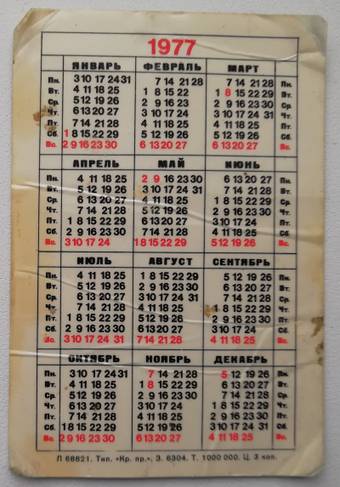 1977
ЯНВАРЬ ФЕВРАЛЬ МАРТ
Пн. 3 10 17 24/31 7 14 21 28 7 14 21 28 Пн.
Вт. 4 11 18 25 1 8 15 22 1 8 15 22 29 Вт.
Ср. 5 12 19 26 2 9 16 23 2 9 16 23 30 Ср.
Чт. 6 13 20 27 3 10 17 24 3 10 17 24 31 Чт.
Пт. 7 14 21 28 4 11 18 25 4 11 18 25 Пт.
Сб. 1 8 15 22 29 5 12 19 26 5 12 19 26 Сб.
Вс. 2 9 16 23 30 6 13 20 27 6 13 20 27 Вс.
АПРЕЛЬ МАЙ ИЮНЬ
Пн. 4 11 18 25 2 9 16 23 30 6 13 20 27 Пн.
Вт. 5 12 19 26 3 10 17 24 31 7 14 21 28 Вт.
Ср. 6 13 20 27 4 11 18 25 1 8 15 22 29 Ср.
Чт. 7 14 21 28 5 12 19 26 2 9 16 23 30 Чт.
Пт. 1 8 15 22 29 6 13 20 27 3 10 17 24 Пт.
Сб. 2 9 16 23 30 7 14 21 28 4 11 18 25 Сб.
Вс. 3 10 17 24 1 8 15 22 29 5 12 19 26 Вс.
ИЮЛЬ АВГУСТ СЕНТЯБРЬ
Пн. 4 11 18 25 1 8 15 22 29 5 12 19 26 Пн.
Вт. 5 12 19 26 2 9 16 23 30 6 13 20 27 Вт.
Ср. 6 13 20 27 3 10 17 24 31 7 14 21 28 Ср.
Чт. 7 14 21 28 4 11 18 25 1 8 15 22 29 Чт.
Пт. 1 8 15 22 29 5 12 19 26 2 9 16 23 30 Пт.
Сб. 2 9 16 23 30 6 13 20 27 3 10 17 24 Сб.
Вс. 3 10 17 24 31 7 14 21 28 4 11 18 25 Вс.
ОКТЯБРЬ НОЯБРЬ ДЕКАБРЬ
Пн. 3 10 17 24/31 7 14 21 28 5 12 19 26 Пн.
Вт. 4 11 18 25 1 8 15 22 29 6 13 20 27 Вт.
Ср. 5 12 19 26 2 9 16 23 30 7 14 21 28 Ср.
Чт. 6 13 20 27 3 10 17 24 1 8 15 22 29 Чт.
Пт. 7 14 21 28 4 11 18 25 2 9 16 23 30 Пт.
Сб. 1 8 15 22 29 5 12 19 26 3 10 17 24 31 Сб.
Вс. 2 9 16 23 30 6 13 20 27 4 11 18 25 Вс.
Л 68821. Тип. «Кр. пр.». З. 6304. Т. 1000000. Ц. 3 коп.